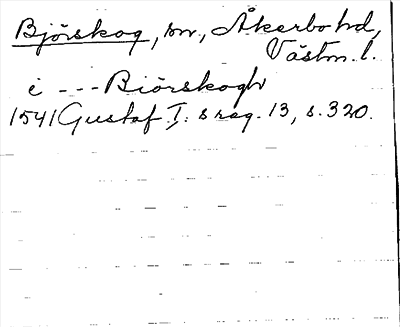 Björskog, sn, Åkerbo hd,
Västm. l.
i --- Biörskogh
1541 Gustaf I:s reg. 13, s. 320.